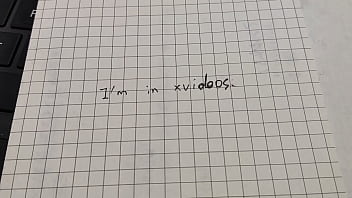 I'm in xvideos.